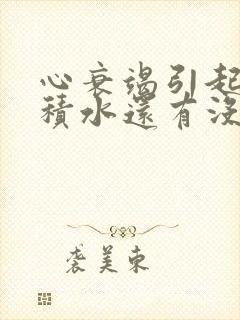 心衰竭引起
積水還有沒
袭美东